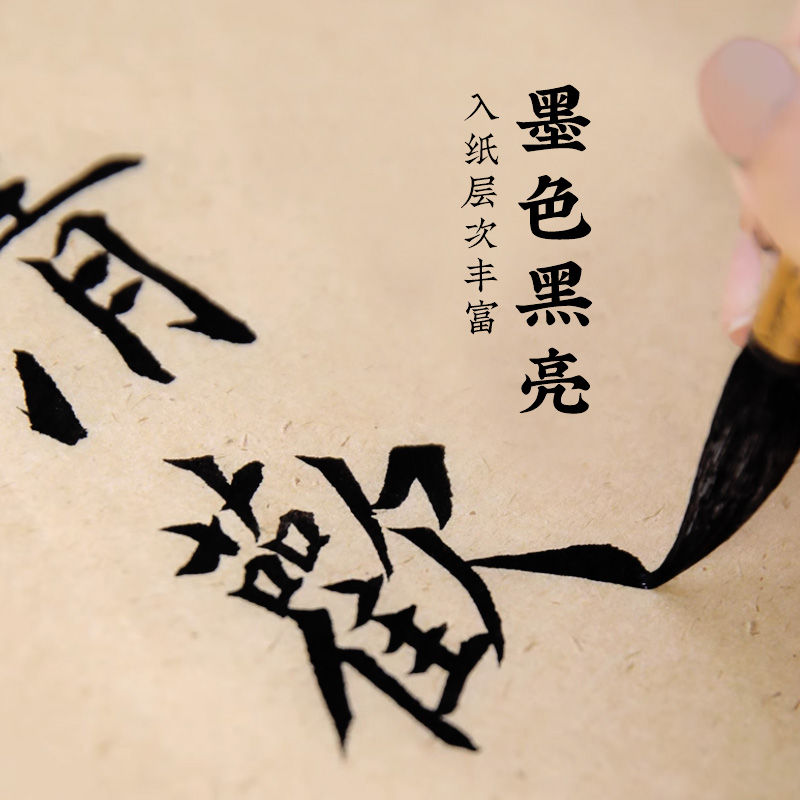 墨色黑亮
入纸层次丰富
清歡